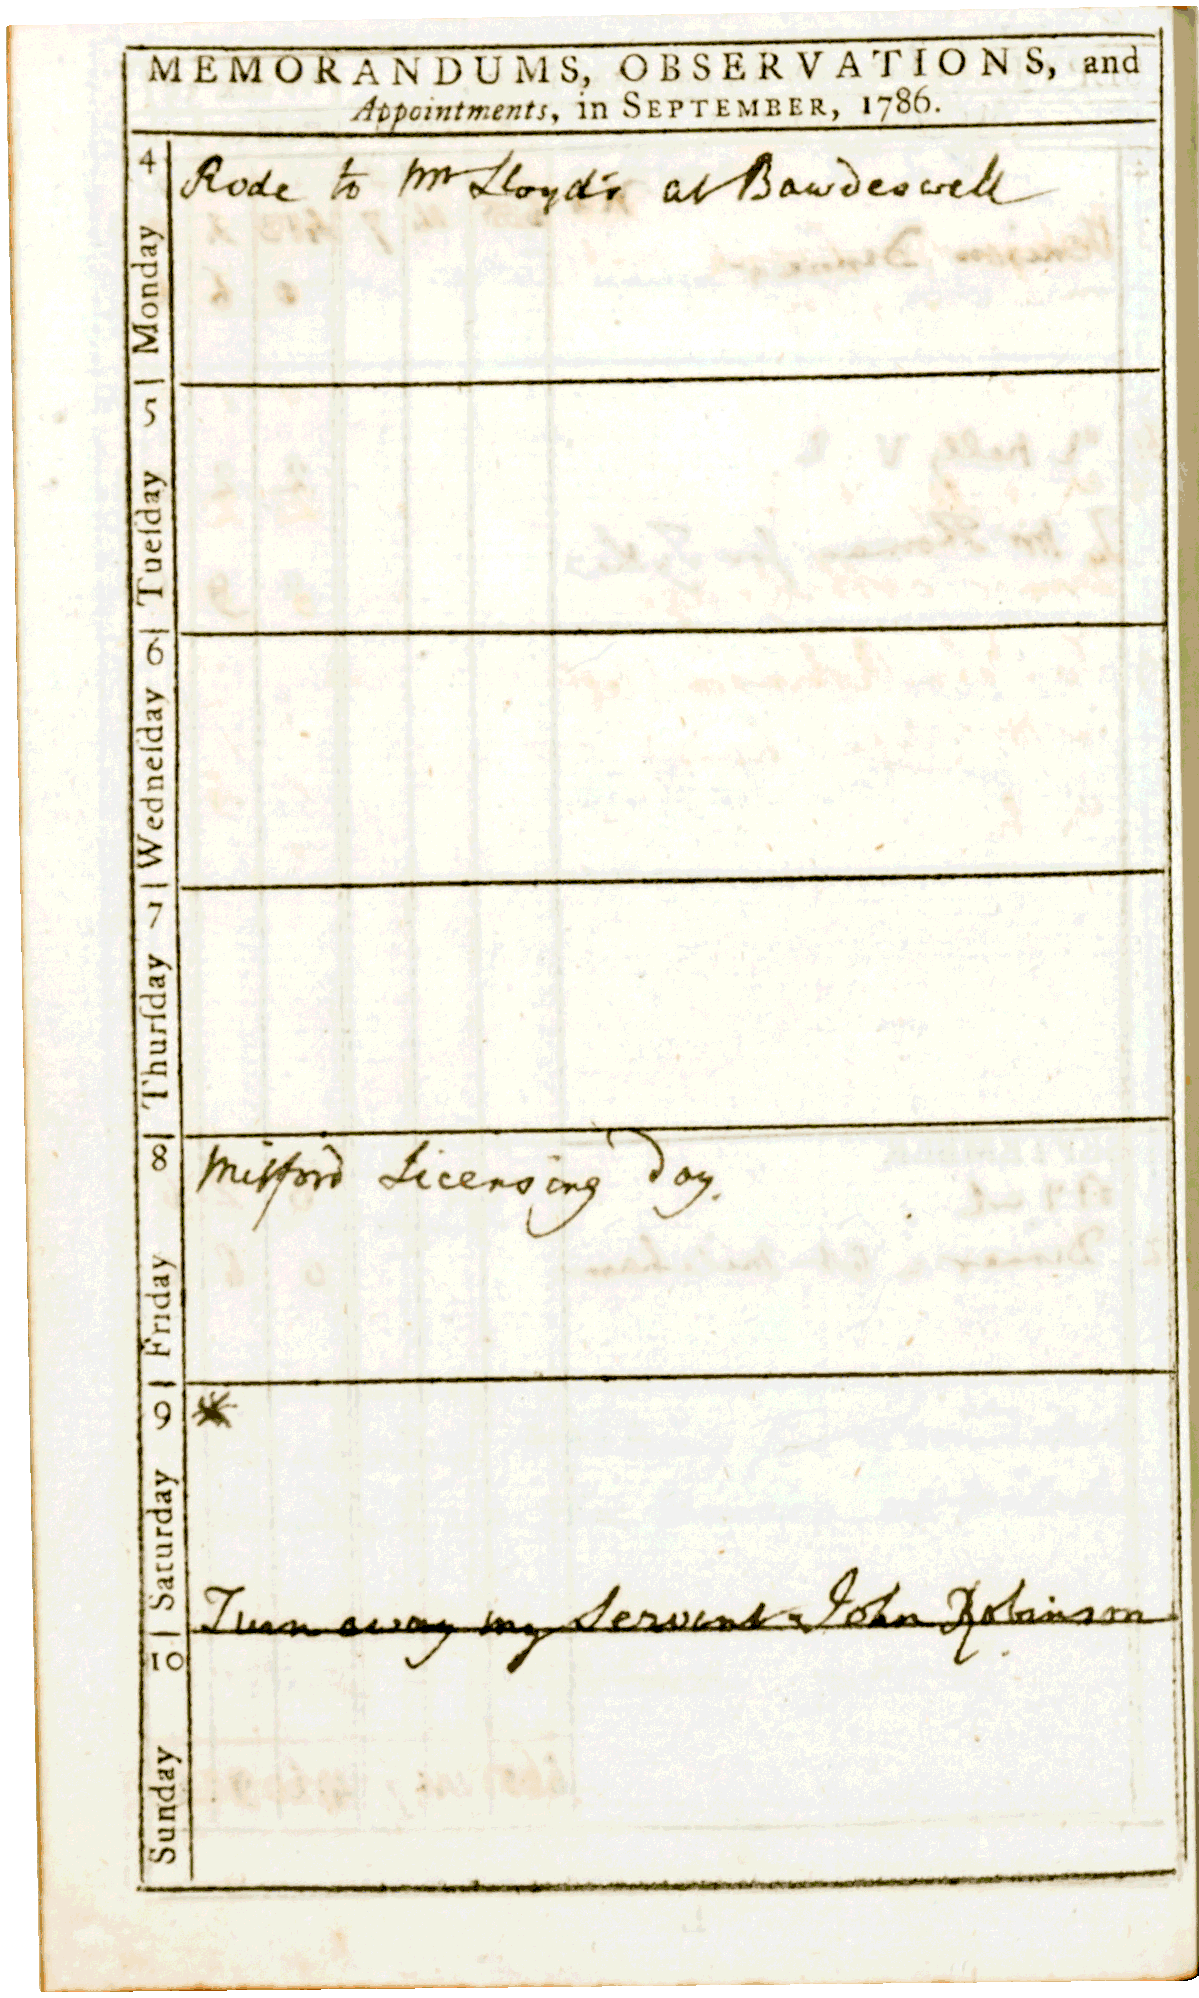 MEMORANDUMS, OBSERVATIONS, and
Appointments, in SEPTEMBER, 1786.
4 Monday
Rode to Mr Lloyd's at Bawdeswell
5 Tueſday
6 Wedneſday
7 Thurſday
8 Friday
Mitford Licensing Day.
9 Saturday
Turn away my Servant John Robinson
10 Sunday